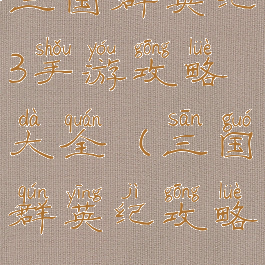 三国群英纪
shǒu yóu gōng lüè
3手游攻略
dà quán sān guó
大全（三国
qún yīng jì gōng lüè
群英纪攻略